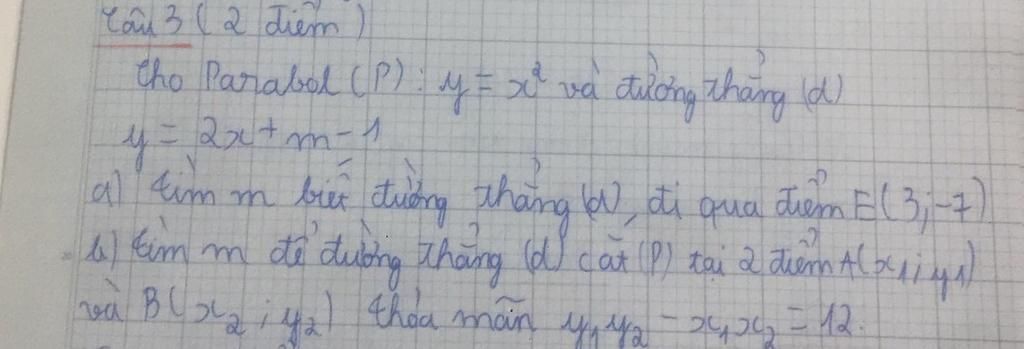 Câu 3 ( 2 điểm )
Cho Parabol (P) : y = x² và đường thẳng (d)
y = 2x + m - 1
a) tìm m biết đường thẳng (d), đi qua điểm E(3;-7)
b) tìm m để đường thẳng (d) cắt (P) tại 2 điểm A(x₁;y₁)
và B(x₂;y₂) thỏa mãn y₁y₂ - x₁x₂ = 12.